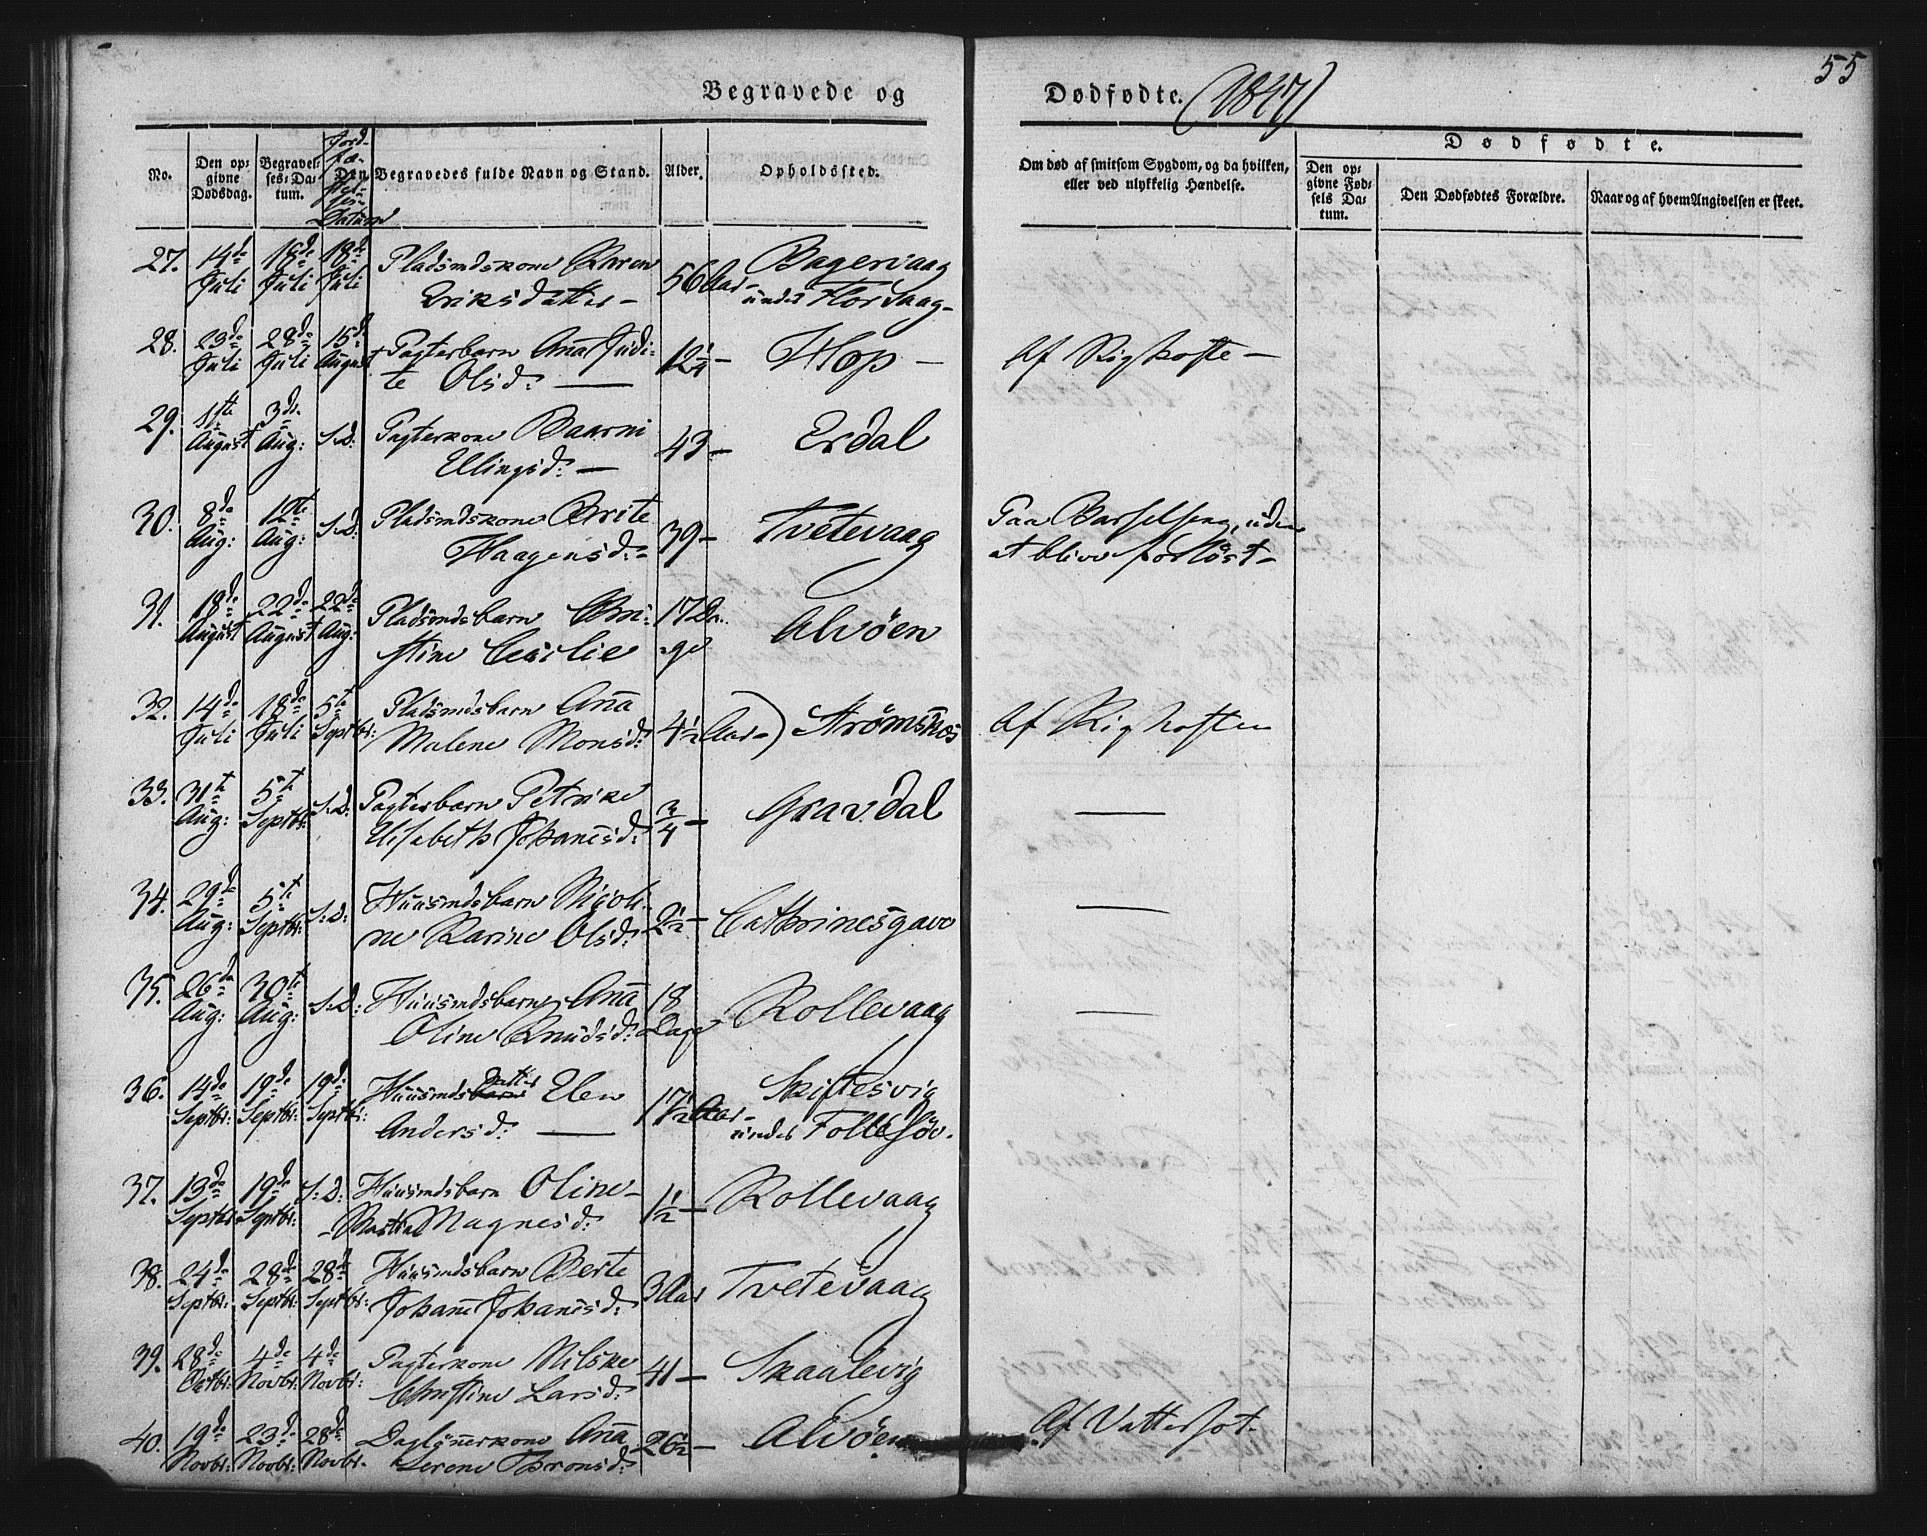 55
Begravede og Dødfødte. (1847)
No.
Den opgivne Dødsdag.
Begravelses-Datum.
Jordfæstelsesdatum
Den Begravedes fulde Navn og Stand.
Alder.
Opholdsted.
Om død af smitsom Sygdom, og da hvilken,
eller ved ulykkelig Hændelse.
Dødfødte.
Den opgivne Fødsels Datum.
Den Dødfødtes Forældre.
Naar og af hvem Angivelsen er skeet.
27. 14de 18de 18de Pladsmdskone Karen 56 Aar- Bagervaag
Juli Juli Juli Eriksdatter- under Florvaag-
28. 23de 28de 15de Pagterbarn Ana Judi- 12¼- Hop- Af Kighoste-
Juli Juli August te Olsd: —
29. 1ste 3de S:D: Pagterkone Baarni 43- Erdal
August Aug: Ellingsd: —
30. 8de 12te S:D: Pladsmdskone Brite 39- Tvetevaag Paa Barselseng, uden
Aug: Aug: Haagensd:- at blive forløst-
31. 18de 22de 22de Pladsmdsbarn Chri- 17 Da- Alvøen
August August Aug: stine Cecilie ge
32. 14de 18de 5te Pladsmdsbarn Ana 4½ Aar-) Strømsnæs Af Kighosten
Juli Juli Septbr: Malene Monsd:
33. 31te 5te S:D: Pagterbarn Petrike ¾- Gravdal —
Aug: Septbr: Elisabeth Johanesd:
34. 29de 5te S:D: Huusmdsbarn Nicoli- 2½- Cathrinesgave —
Aug: Septbr: ne Karine Olsd:
35. 26de 30te S:D: Huusmdsbarn Ana 18 Rollevaag —
Aug: Aug: Oline Knudsd: Dage
36. 14de 19de 19de Huusmdsdatter Elen 17½ Aar- Skiftesvig
Septbr: Septbr: Septbr: Andersd: — under Follesøv.
37. 13de 19de S:D: Huusmdsbarn Oline- 1½- Rollevaag
Septbr Septbr: Magnesd:
38. 24de 28de 28de Huusmdsbarn Berte 3 Aar Tvetevaag
Septbr: Septbr: Septbr: Johane Johanesd:
39. 28de 4de 4de Pagterkone Nilske 41- Skaalevig
Octbr: Novbr: Novbr: Christine Larsd:
40. 19de 23de 28de Daglønerkone Ana 26½- Alvøen Af Vattersot.
Novbr: Novbr: Novbr. Serene Thronsd: